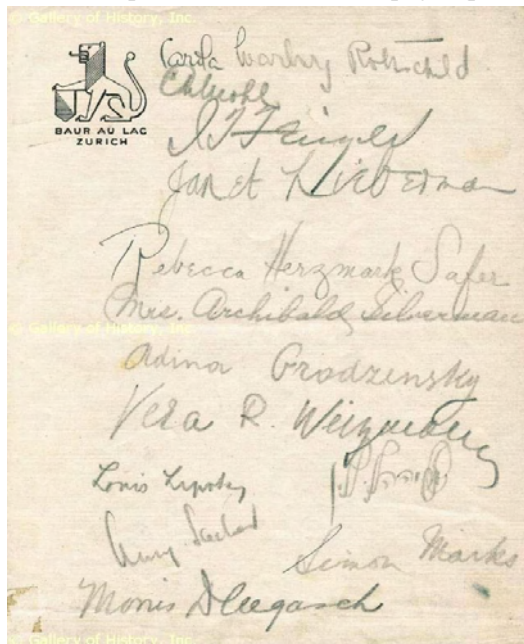 © Gallery of History, Inc.
Carola Warburg Rothschild
BAUR AU LAC
ZURICH
Janet Lieberman
Rebecca Herzmark Safer
Mrs. Archibald Silberman
© Gallery of History, Inc.
Adina Grodzensky
Vera R. Weizmann
Louis Lipsky
Simon Marks
Morris
© Gallery of History, Inc.